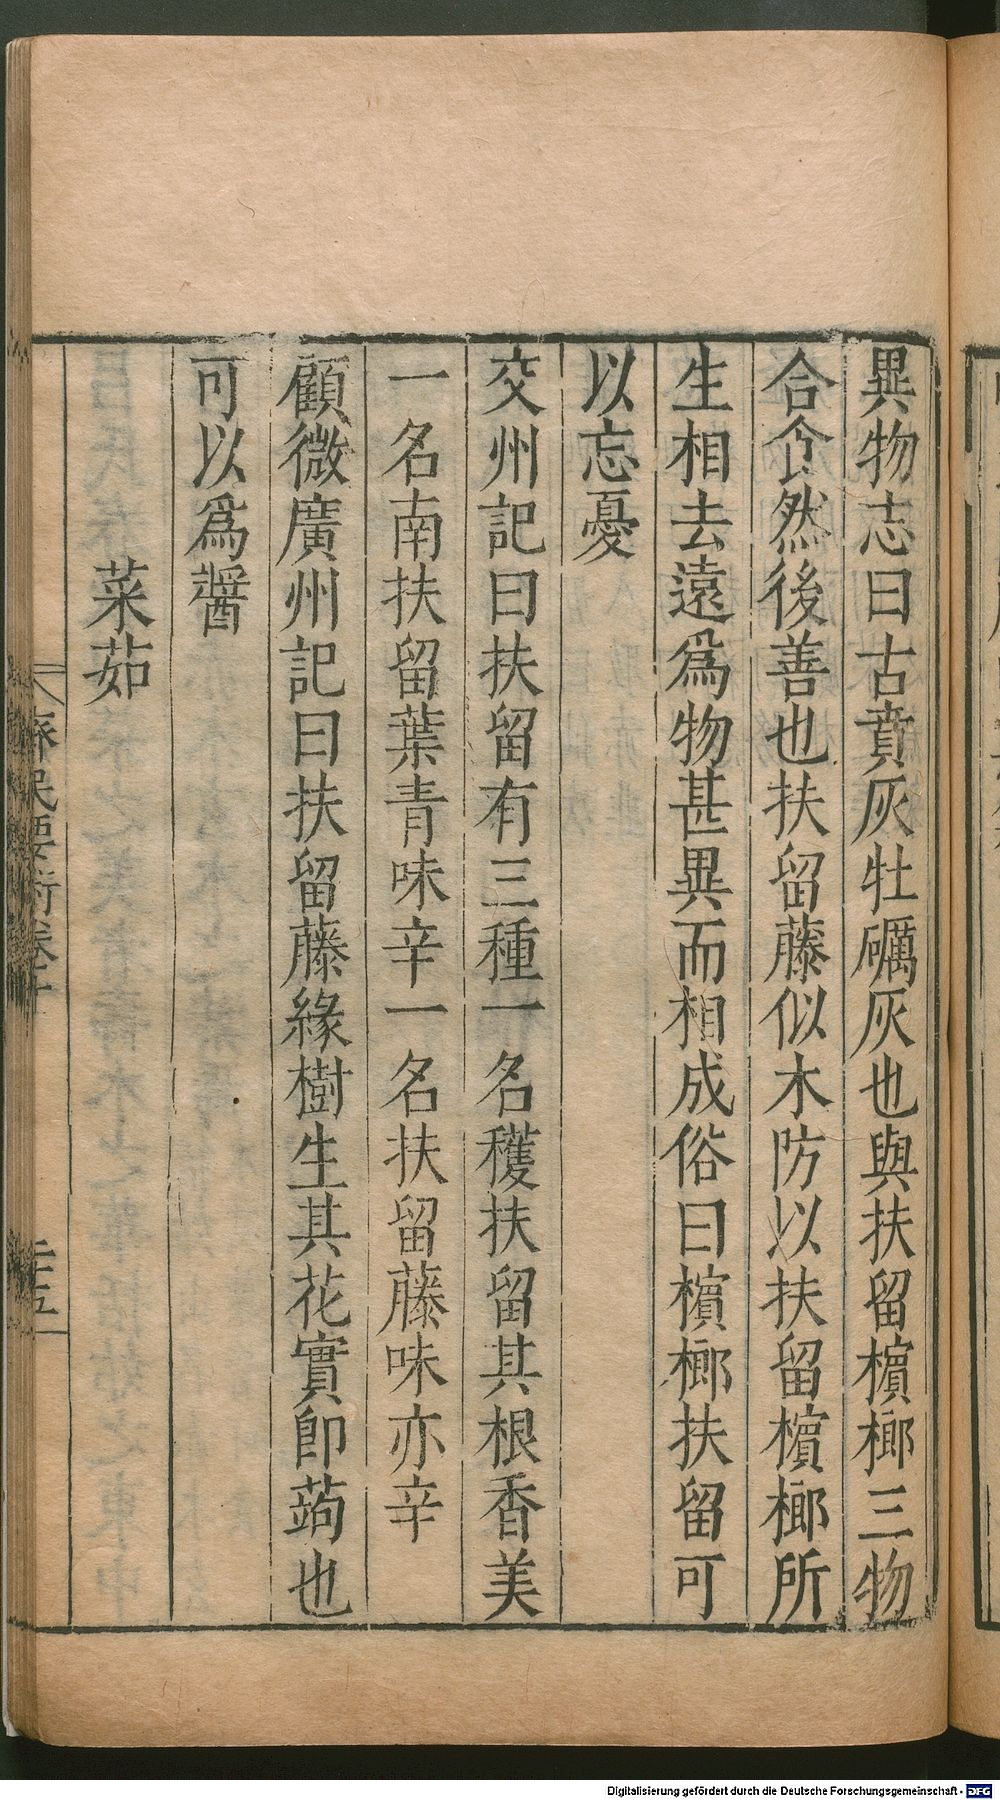 異物志曰古賁灰牡礪灰也與扶留檳榔三物
合食然後善也扶留藤似木防以扶留檳榔所
生相去遠爲物甚異而相成俗曰檳榔扶留可
以忘憂
交州記曰扶留有三種一名穫扶留其根香美
一名南扶留葉青味辛一名扶留藤味亦辛
顧微廣州記曰扶留藤緣樹生其花實卽蒟也
可以爲醬
菜茹
齊民要術卷十
Digitalisierung gefördert durch die Deutsche Forschungsgemeinschaft - DFG